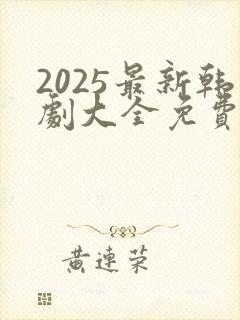 2025最新韩
劇大全免費
黄連荣